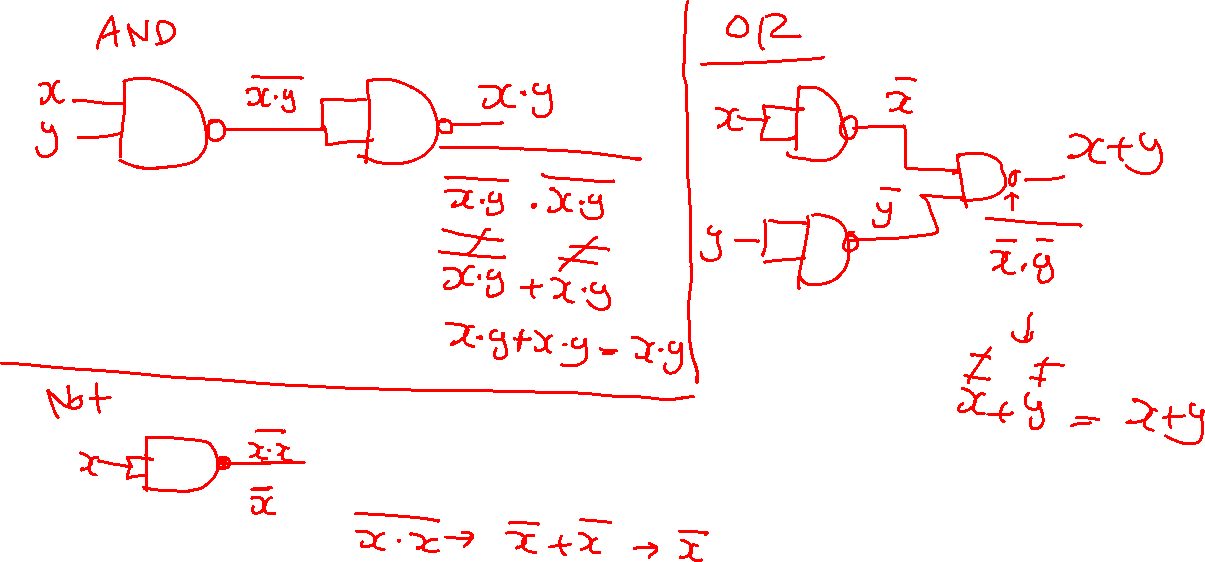 AND
x
y
x̅·̅y̅
x·y
x̅·̅y̅ . x̅·̅y̅
x·y + x·y
x·y+x·y = x·y
OR
x
x̅
y
y̅
x+y
↑
x̅·y̅
↓
x+y = x+y
Not
x
x̅·̅x̅
x̅
x̅·̅x̅ → x̅+x̅ → x̅